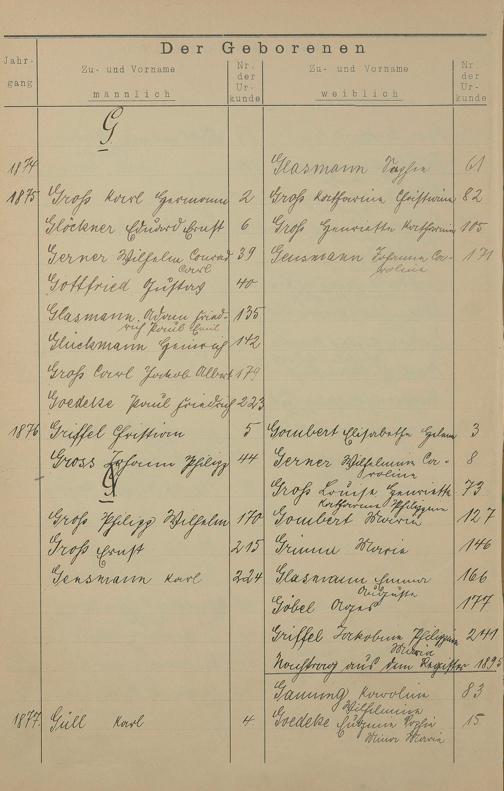 Der Geborenen
Jahr-
gang
Zu- und Vorname
männlich
Nr.
der
Ur-
kunde
Zu- und Vorname
weiblich
Nr.
der
Ur-
kunde
G
1874 Glasmann Sophie 61
1875 Groß Karl Hermann 2 Groß Katharine Christiane 82
Glöckner Eduard Ernst 6 Groß Henriette Katharine 105
Gerner Wilhelm Conrad 39 Gensmann Johanna Ca- 171
Carl roline
Gottfried Gustav 40
Glasmann Adam Fried- 135
rich Paul Emil
Glückmann Heinrich 142
Groß Carl Jakob Albert 179
Goedeke Paul Friedrich 223
1876 Griffel Christian 5 Gombert Elisabethe Helene 3
Gross Johann Philipp 44 Gerner Wilhelmine Ca- 8
roline
G Groß Louise Henriette 73
Katharine Philippine
Groß Philipp Wilhelm 170 Gombert Maria 127
Groß Ernst 215 Grimm Marie 146
Gensmann Karl 224 Glasmann Emma 166
Auguste
Göbel Agnes 177
Griffel Jakobine Philippine 241
Maria
Nachtrag aus dem Register 1895
Karoline 83
Wilhelmine
1877. Güll Karl 4 Goedeke Sophie 15
Minna Marie